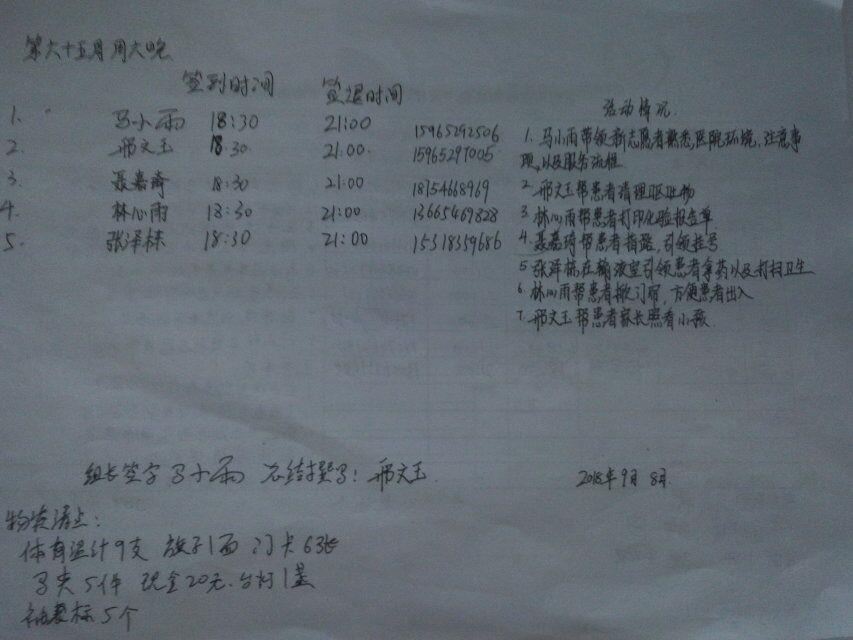 第六十五周 周六晚
签到时间 签退时间 活动情况
1. 马小雨 18:30 21:00 15965292506
2. 邢文玉 18:30 21:00 15965297005
3. 聂嘉琦 18:30 21:00 18754668969
4. 林心雨 18:30 21:00 13665469828
5. 张泽栋 18:30 21:00 15318359686
1. 马小雨带领新志愿者熟悉医院环境、注意事
项,以及服务流程
2. 邢文玉帮患者清理呕吐物
3. 林心雨帮患者打印化验报告单
4. 聂嘉琦帮患者指路,引领挂号
5 张泽栋在输液室引领患者拿药以及打扫卫生
6. 林心雨帮患者掀门帘,方便患者出入
7. 邢文玉帮患者家长照看小孩.
组长签字 马小雨 总结撰写: 邢文玉
2018年9月8日
物资清点:
体温计9支 旗子1面 门卡6张
马夹5件 现金20元.台灯1盏
袖标5个